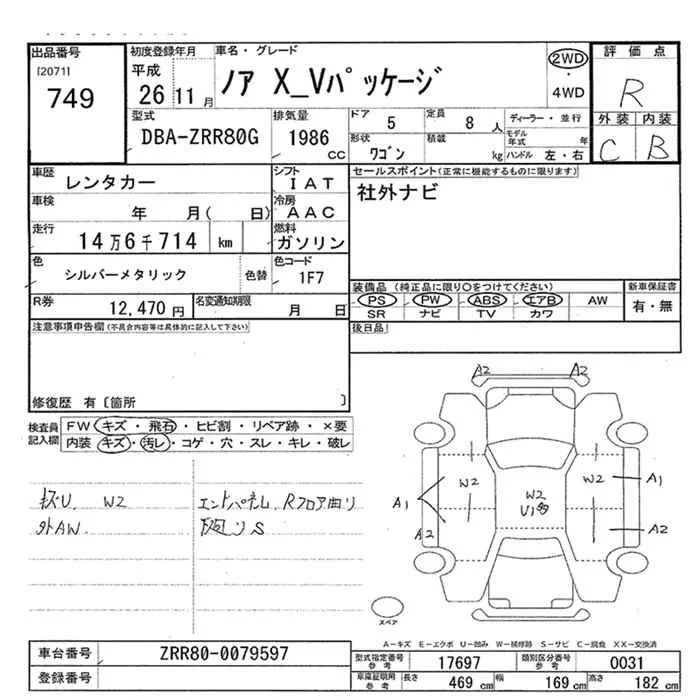 出品番号 初度登録年月 車名・グレード 評価点
[2071] 平成 ノア X_Vパッケージ 2WD R
749 26 11月 ・ 4WD
型式 排気量 ドア 5 定員 8人 ディーラー・並行 外装 内装
DBA-ZRR80G 1986 CC 形状 ワゴン 積載 kg モデル年式 年 C B
ハンドル 左・右
車歴 レンタカー シフト IAT セールスポイント(正常に機能するものに限ります)
車検 年 月( 日) 冷房 AAC 社外ナビ
走行 14万6千714 km 燃料 ガソリン
色 シルバーメタリック 色替 色コード 1F7
装備品(純正品に限り○をつけてください) 新車保証書
PS PW ABS エアB AW 有・無
SR ナビ TV カワ
R券 12,470円 名変通知期限 月 日
後日品
注意事項申告欄(不具合内容等は具体的に記入して下さい)
修復歴 有〔箇所 〕
検査員記入欄 FW キズ・飛石・ヒビ割・リペア跡・×要
内装 キズ・汚レ・コゲ・穴・スレ・キレ・破レ
W2 エンドパネル、Rフロア曲り
外AW
S
A2 A2
W2 W2 A1
A1 W2
U1多
A2 A2
スペア
A-キズ E-エクボ U-凹み W-補修跡 S-サビ C-腐食 XX-交換済
車台番号 ZRR80-0079597
登録番号
型式指定番号 参考 17697 類別区分番号 参考 0031
車庫証明用 参考 長さ 469 cm 幅 169 cm 高さ 182 cm